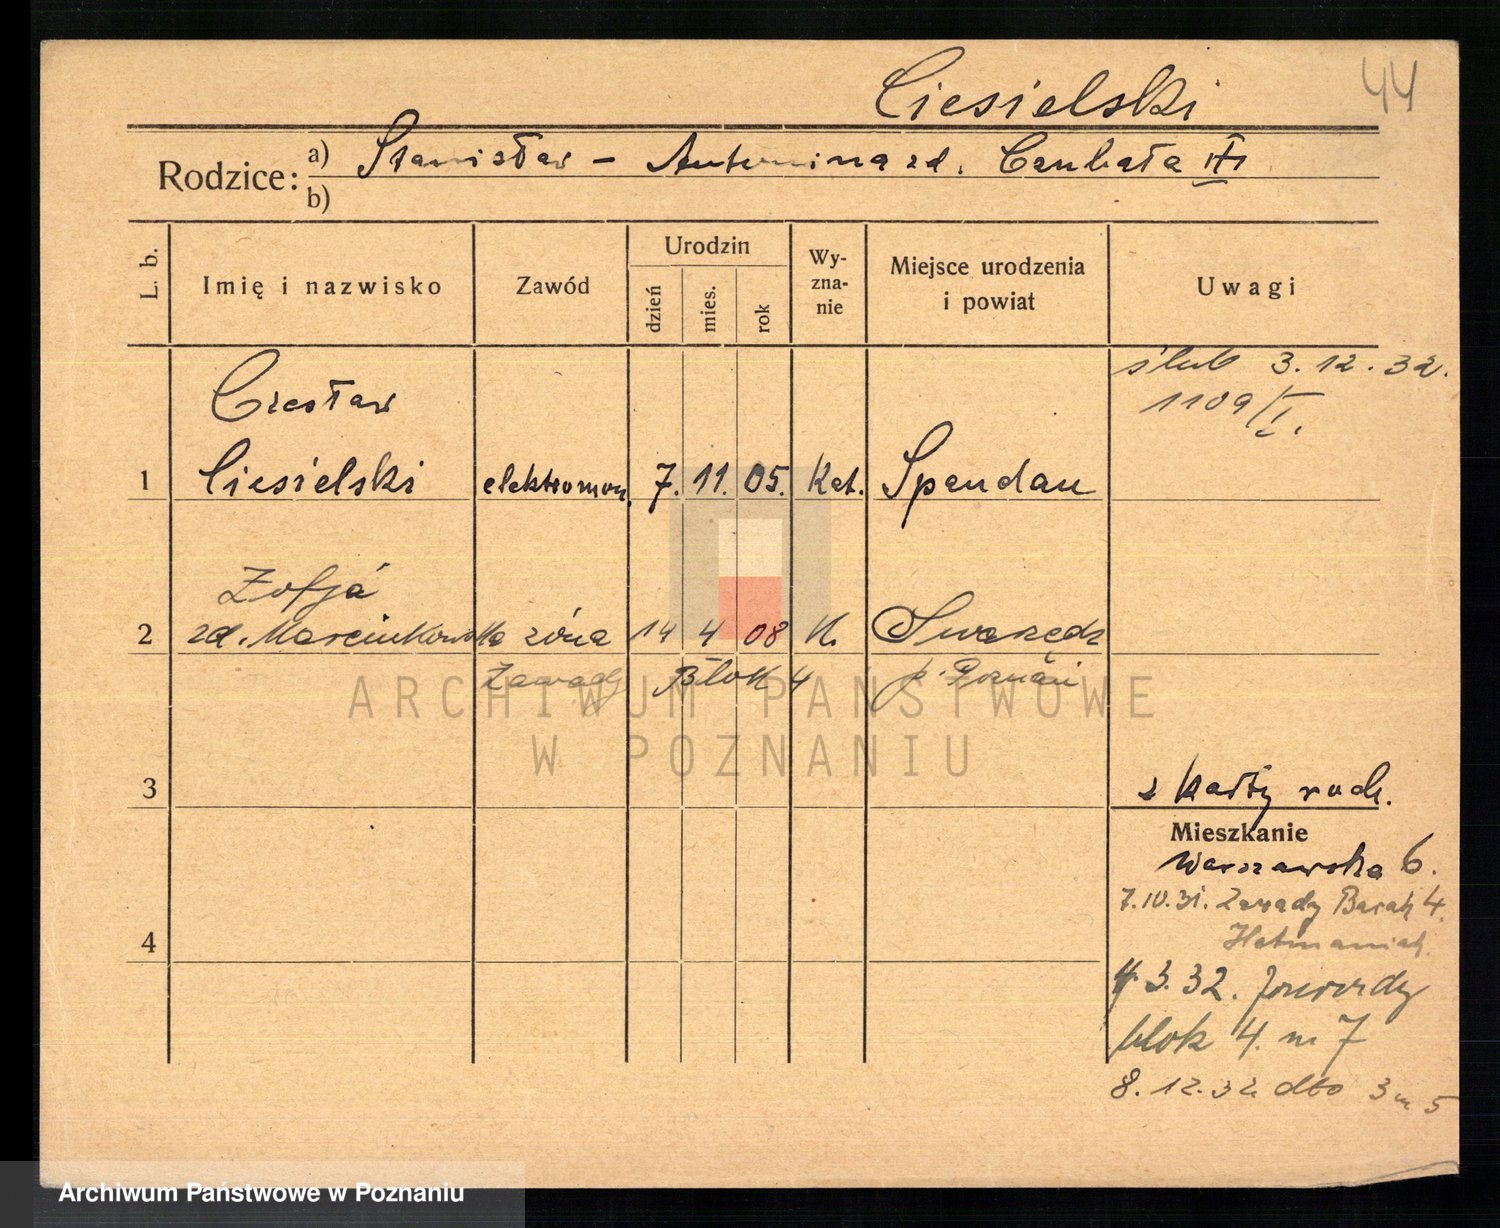 44
Ciesielski
Rodzice: a) Stanisław – Antonina zd. Cenbała
b)
L. b.
Imię i nazwisko
Zawód
Urodzin
dzień
mies.
rok
Wy-
zna-
nie
Miejsce urodzenia
i powiat
Uwagi
ślub 3.12.32.
1109/I.
Czesław
1 Ciesielski elektromon. 7. 11. 05. Kat. Spandau
Zofja
2 zd. Marcinkowska żona 14 4 08 K. Swarzędz
Zawady Blok 4 p. Poznań
ARCHIWUM PAŃSTWOWE
W POZNANIU
3
z karty rodz.
Mieszkanie
Warszawska 6.
7.10.31. Zawady Barak 4.
4
4.3.32. Zawady
blok 4. m 7
8.12.32 dto 3 m 5
Archiwum Państwowe w Poznaniu